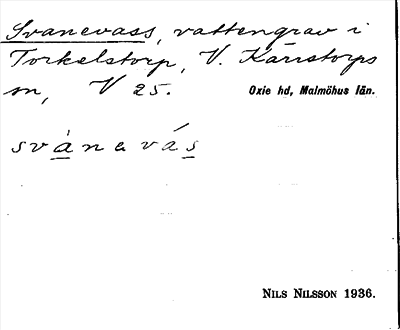 Svanevass, vattengrav i
Torkelstorp, V. Kärrstorps
sn, V 25. Oxie hd, Malmöhus län.
svà̱nevás̱
NILS NILSSON 1936.